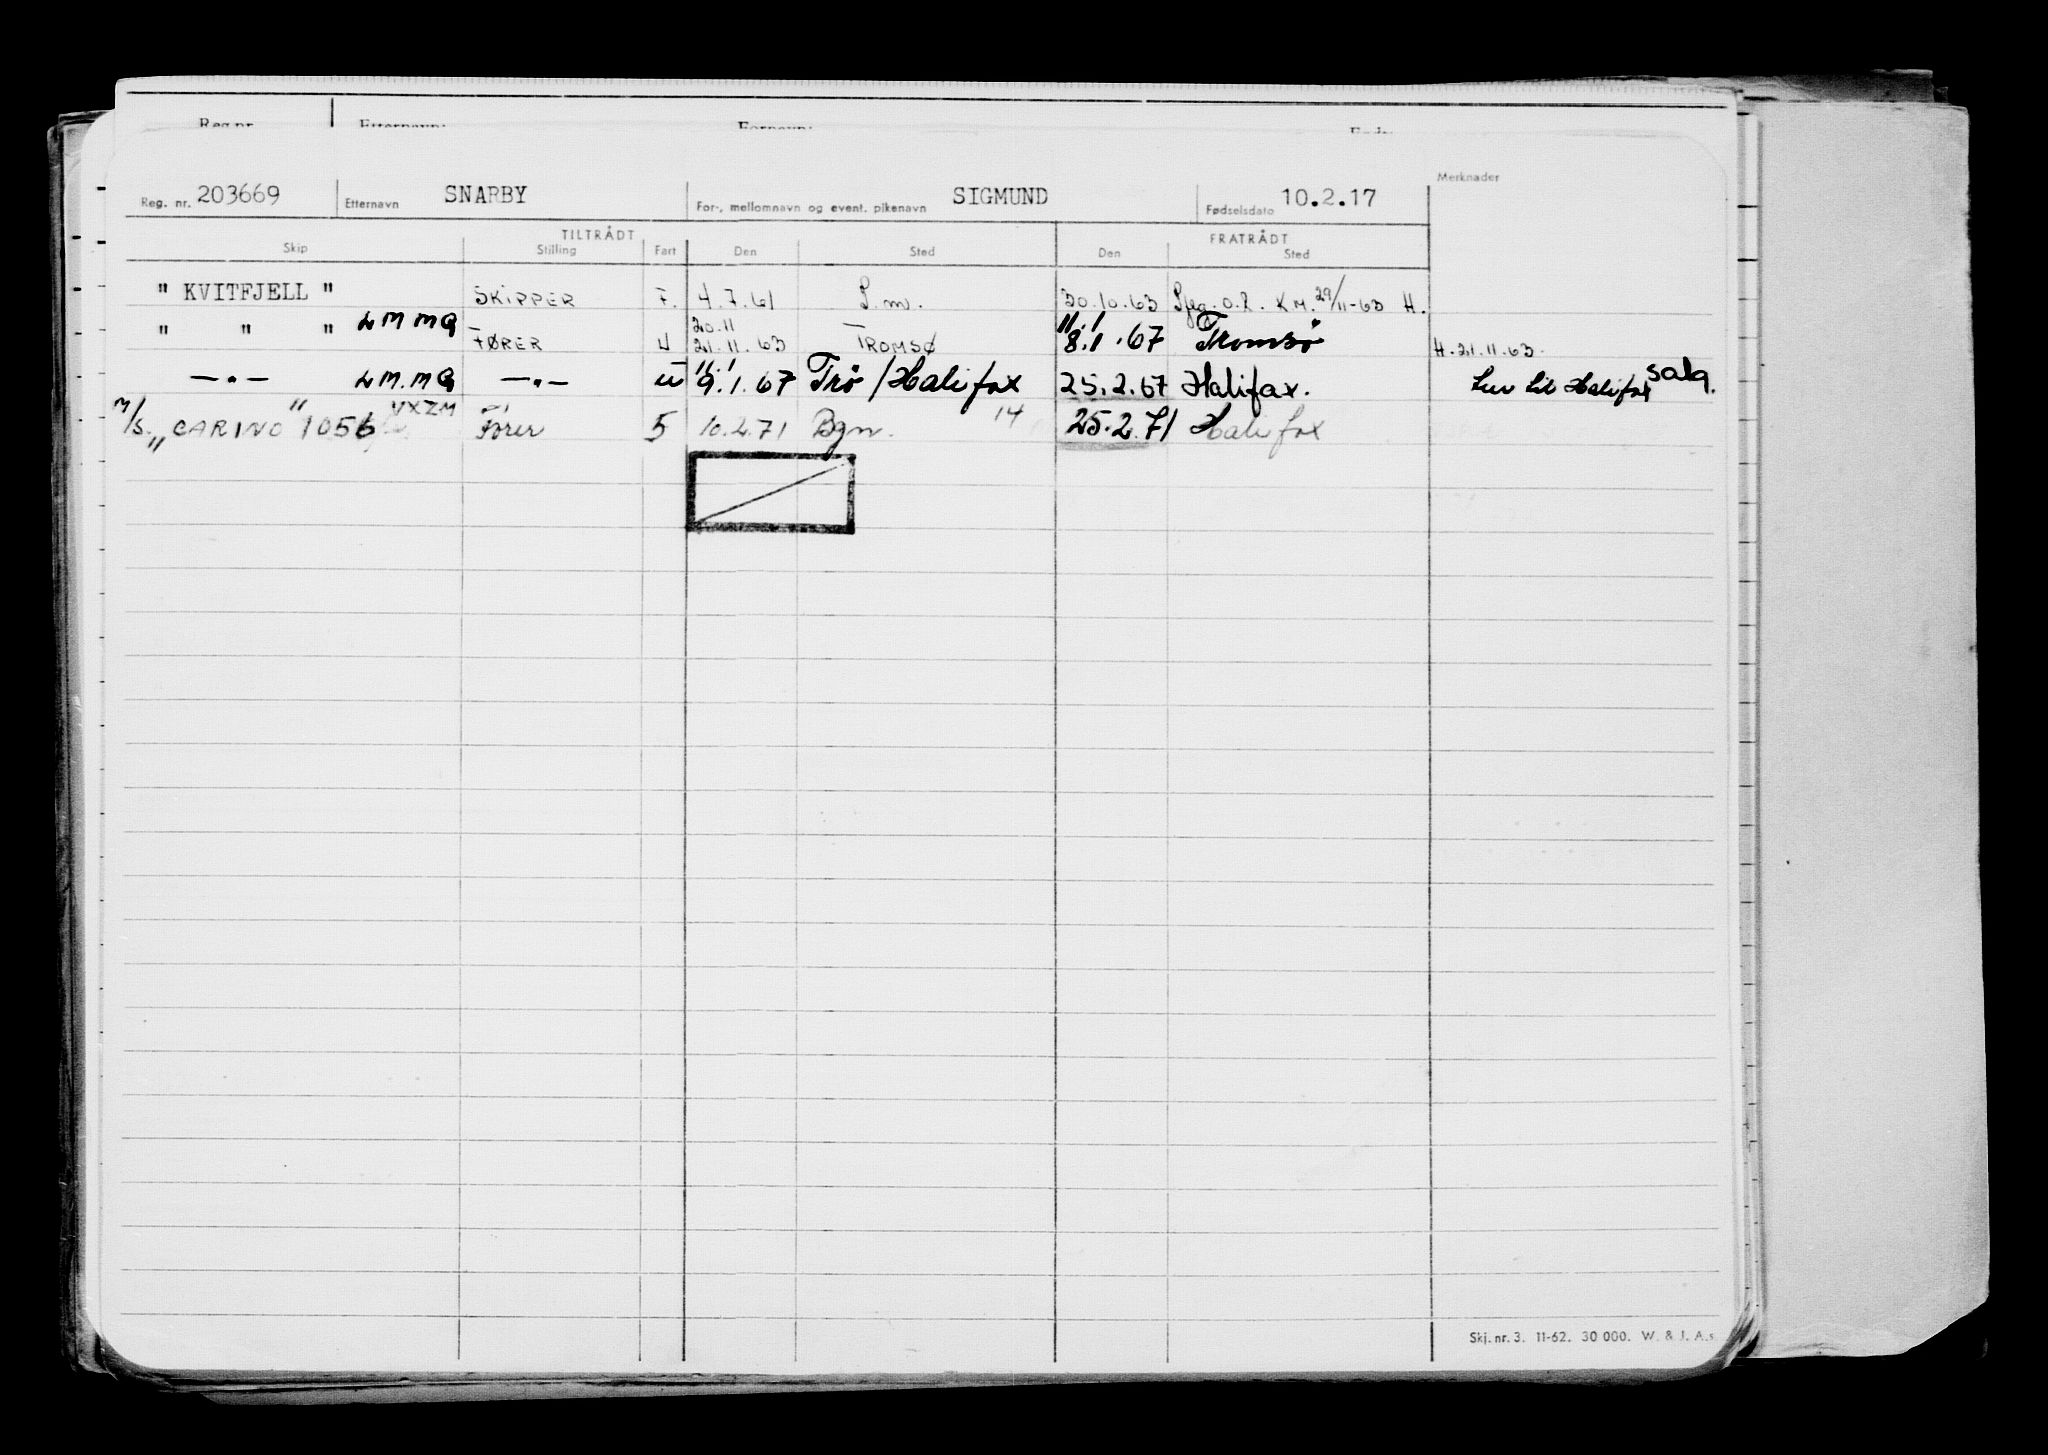 Reg.nr. Etternavn: Fornavn:
Merknader
Reg. nr. 203669 Etternavn SNARBY For-, mellomnavn og event. pikenavn SIGMUND Fødselsdato 10.2.17
TILTRÅDT FRATRÅDT
Skip Stilling Fart Den Sted Den Sted
" KVITFJELL " SKIPPER F. 4.7.61 P.m. 30.10.63 KM. 29/11-63 H.
20.11 11.1
" " " LMMQ FØRER U 21.11.63 TROMSØ 8.1.67 Tromsø H.21.11.63.
11.1
—"— LM.MQ —"— U 9.1.67 Trø/Halifax 25.2.67 Halifax. til Halifax salg.
M/S. "CARINO" 1056 VXZM Fører 5 10.2.71 Bgn. 14 25.2.71 Halifax
Skj. nr. 3. 11-62. 30 000. W. & J. A.s